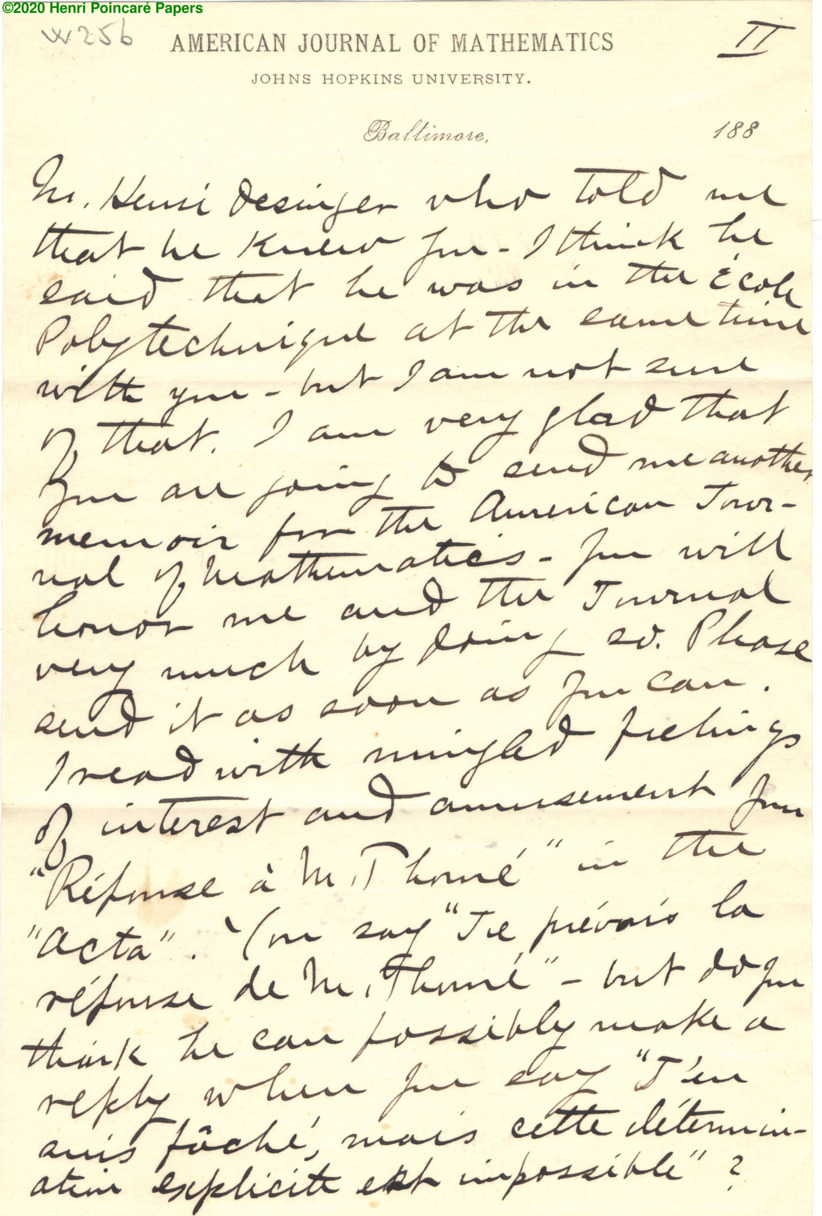 ©2020 Henri Poincaré Papers
W256
II
AMERICAN JOURNAL OF MATHEMATICS
JOHNS HOPKINS UNIVERSITY.
Baltimore, 188
M. Henri who told me
that he knew you - I think he
said that he was in the École
Polytechnique at the same time
with you - but I am not sure
of that. I am very glad that
you are going to send me another
memoir for the American Jour-
nal of Mathematics - you will
honor me and the Journal
very much by doing so. Please
send it as soon as you can.
I read with mingled feelings
of interest and amusement your
"Réponse à M. Thomé" in the
"Acta". You say "Je prévois la
réponse de M. Thomé" - but do you
think he can possibly make a
reply when you say "J'en
suis fâché, mais cette détermin-
ation explicite est impossible" ?